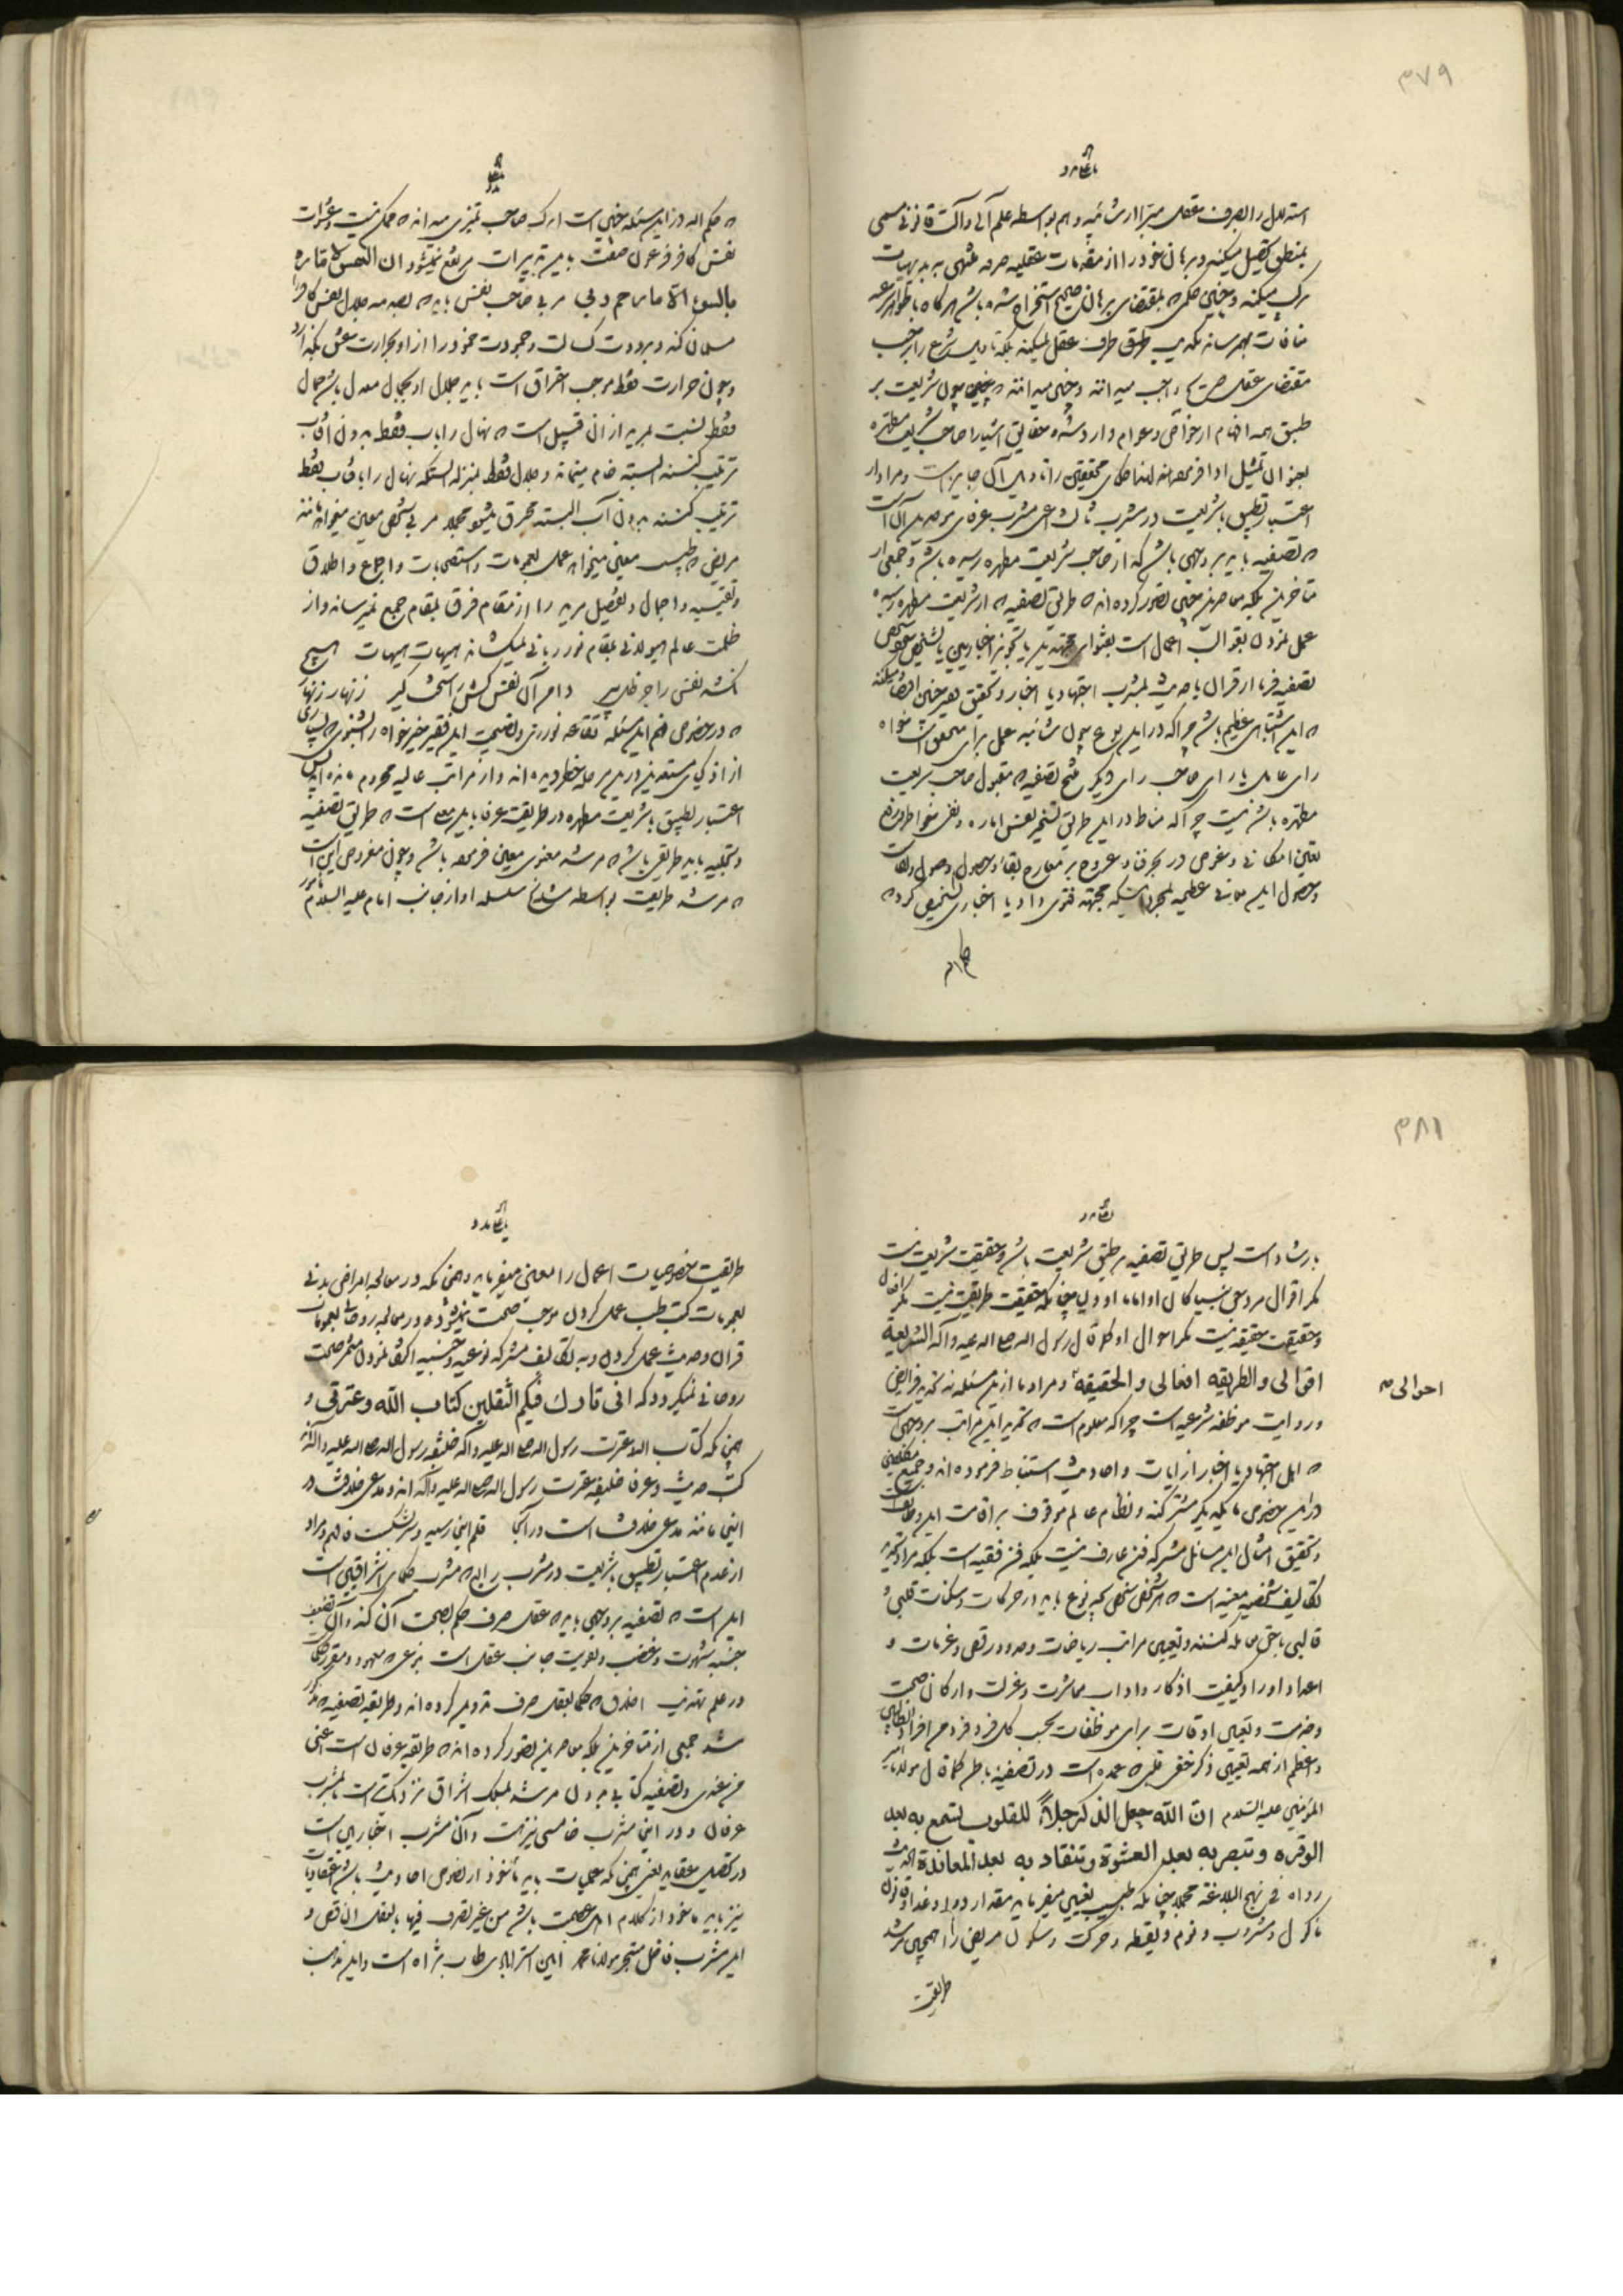 ۳۷۹
استدلال را بصرف عقل مبرا از شائبه وهم بواسطه علم آلی و آلت قانونی مسمی
بمنطق تحصیل میکند و برهان خود را از مقدمات عقلیه صرفه منتهی به بدیهیات
مرکب میکند و چنین حکمی که بمقتضای برهان صحیح استخراج شده باشد هرگاه با ظواهر شرعیه
منافات بهم رساند تکذیب طرف عقل نمیکند بلکه تاویل شرع را بر حسب
مقتضای عقل صریح واجب میدانند و چنین میدانند که چون شریعت بر
طبق همه افهام از خواص و عوام وارد شده حقایق اشیا را صاحب شریعت مطهره
بعنوان تمثیل ادا فرموده‌اند لهذا حکمای محققین را تاویل آن جایز است و مراد از
اعتبار تطبیق با شریعت در مشرب ثالث اعنی مشرب عرفای موحدین آن است
که تصفیه باید بر وجهی باشد که از صاحب شریعت مطهره رسیده باشد و جمعی از
متاخرین بلکه معاصرین چنین تصور کرده‌اند که طریق تصفیه که از شریعت مطهره رسیده
عمل نمودن بقوالب اعمال است بفتوای مجتهدین یا تجویز اخباریین یا تشخیص شخص
تصفیه فرما از قرآن یا حدیث بمشرب اجتهاد یا اخبار و تحقیق فقیر چنین اقتضا میکند
که این اشتباهی عظیم باشد چرا که در این نوع چون شائبه عمل برای متحقق است خواه
رای عامل یا رای صاحب رای دیگر منتج تصفیه که مقبول صاحب شریعت
مطهره باشد نیست چرا که مناط در این طریق تسخیر نفس اماره و نفی خواطر و رفع
تعین امکانی و غوص در بحر فنا و عروج بر معارج بقا و حصول وصول و لقاست
و حصول این معانی عظیمه بمجرد اینکه مجتهد فتوی داد یا اخباری تشخیص کرد که
حکم اله
که حکم اله در این مسئله چنین است اندک صاحب تمیزی میداند که ممکن نیست و عثرات
نفس کافر فرعون صفت باین تدبیرات مرتفع نمیشود ان النفس لامارة
بالسوء الا ما رحم ربی مربی صاحب نفس باید که بصدمه جلال نفس کافر را
مسلمان کند و برودت کسالت و جمودت خمود را از او بحرارت عشق بگدازد
و چون حرارت فقط موجب احتراق است باید جلال او بجمال معدل باشد جمال
فقط نسبت بمرید از آن قبیل است که نهال را باب فقط بدون آفتاب
تربیت کنند البته خام میماند و جلال فقط بمنزله اینکه نهال را بآفتاب فقط
تربیت کنند بدون آب البته محرق میشود مجملا مربی شخصی معین میخواهد مانند
مریض که طبیب معین میخواهد عمل بعمومات و استصحابات و اجماع و اطلاق
و تقیید و اجمال و تفصیل مرید را از مقام فرق بمقام جمع نمیرساند و از
ظلمت عالم هیولانی بمقام نور ربانی نمیکشاند هیهات هیهات هیچ
نکشد نفس را جز ظل پیر دامن آن نفس کش را سخت گیر زنهار زنهار
که در خصوص فهم این مسئله تقاعد نورزی و نصیحت این فقیر خیرخواه را بشنوی که بسیاری
از اذکیای مستعدین در این مرحله خطر دیده‌اند و از مراتب عالیه محروم مانده‌اند پس
اعتبار تطبیق با شریعت مطهره در طریقت عرفا باین معنی است که طریق تصفیه
و تجلیه باید طریقی باشد که مرشد معنوی معین فرموده باشد و چون مفروض این است
که مرشد طریقت بواسطه مشایخ سلسله او از جانب امام علیه السلام مامور
۳۸۱
بارشاد است پس طریق تصفیه بر طبق شریعت باشد و حقیقت شریعت نیست
مگر اقوال مروی بنیا کان او امامنا او ولی چنانکه حقیقت طریقت نیست مگر افعال
و حقیقت حقیقه نیست مگر احوال او کما قال رسول اله صلی اله علیه و آله الشریعة
اقوالی والطریقه افعالی والحقیقة و مراد ما از این مسئله نه تحدید فرایض
احوالی صح
و روایت موظفه شرعیه است چرا که معلوم است که تحدید این مراتب بر وجهی است
که اهل اجتهاد یا اخبار از آیات و احادیث استنباط فرموده‌اند و جمیع مکلفین
در این خصوص با یکدیگر مشترکند و نظام عالم موقوف بر اقامت این وظایف است
و تحقیق امثال این مسائل مشترکه فن عارف نیست بلکه فن فقیه است بلکه مراد تحدید
تکالیف شخصیه معینه است که هر شخص شخصی بچه نوع باید از حرکات و سکنات قلبی و
قالبی با حق معامله کنند و تعیین مراتب ریاضات و صدور رقص و غرمات و
اعداد اوراد و کیفیت اذکار و اداب معاشرت و عزلت و ارکان صحبت
و خدمت و تعیین اوقات برای موظفات بحسب کل فرد فرد من افراد الطالبین
و اعظم از همه تعیین ذکر خفی قلبی که عمده است در تصفیه باطن کما قال مولانا امیر
المؤمنین علیه السلام ان الله جعل الذکر جلاءً للقلوب تسمع به بعد
الوقره وتبصر به بعد العشوة وتنقاد به بعد المعاندة الحدیث
رواه فی نهج البلاغة مجملا چنانکه طبیب تعیین میفرماید مقدار دوا و غذا و قانون
ماکول و مشروب و نوم و یقظه و حرکت و سکون مریض را همچنین مرشد
طریقت
طریقت خصوصیات اعمال را معین میفرماید و همچنانکه در معالجه امراض بدنی
بعمومات کتب طب عمل کردن موجب صحت نمیشود و در معالجه روحانی بعمومات
قرآن و حدیث عمل کردن و به تکالیف مشترکه نوعیه و جنسیه اکتفا نمودن مثمر صحت
روحانی نمیگردد که انی تارک فیکم الثقلین کتاب الله وعترتی و
همچنانکه کتاب اله و عترت رسول اله صلی اله علیه و آله خلیفه رسول اله صلی اله علیه و آله‌اند
کتب حدیث و عرفا خلیفه عترت رسول اله صلی اله علیه و آله اند و مدعی خلاف در
اینجا مانند مدعی خلاف است در آنجا قلم اینجا رسید و سر بشکست فافهم و مراد
از عدم اعتبار تطبیق بشریعت در مشرب رابع که مشرب حکمای اشراقیین است
این است که تصفیه بر وجهی باید که عقل صرف حکم بصحت آن کند و آن تضعیف
جنبه شهوت و غضب و تقویت جانب عقل است بنوعی که معهود و مقرر حکماست
در علم تهذیب اخلاق که حکما بعقل صرف تدوین کرده‌اند و طریقه تصفیه که مذکور
شد جمعی از متاخرین بلکه معاصرین تصور کرده‌اند که طریقه عرفان است اعنی
من عندی و تصفیه کتابی بدون مرشد بمسلک اشراق نزدیکتر است تا بمشرب
عرفان و در اینجا مشرب خامسی نیز هست و آن مشرب اخباریین است
در تحصیل عقاید یعنی همچنانکه عملیات باید ماخوذ از نصوص احادیث باشد اعتقادیات
نیز باید ماخوذ از کلام اهل عصمت باشد من غیر تصرف فیها بالعقل الناقص و
این مشرب فاضل متبحر مولانا محمد امین استرابادی طاب ثراه است و این مذهب